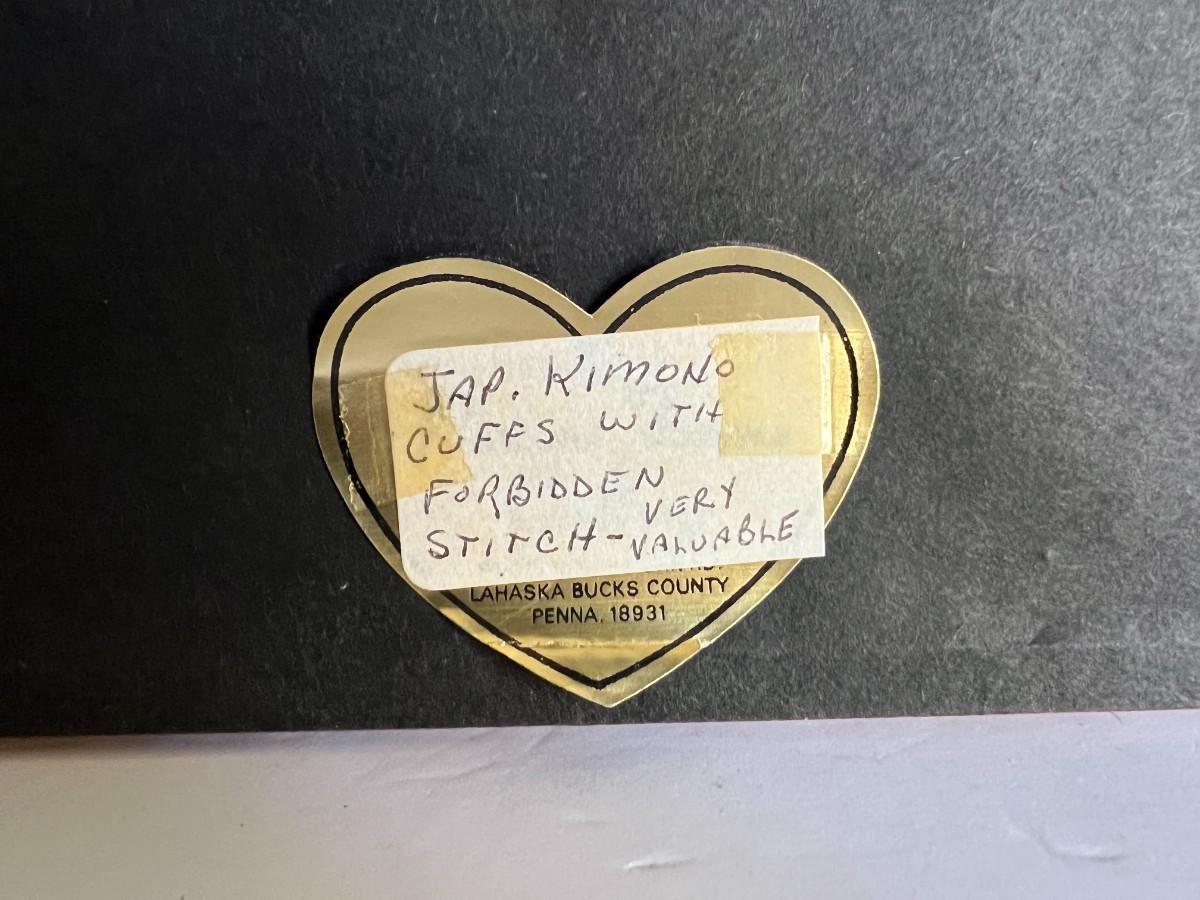 JAP. KIMONO
CUFFS WITH
FORBIDDEN
STITCH - VERY VALUABLE
LAHASKA BUCKS COUNTY
PENNA. 18931